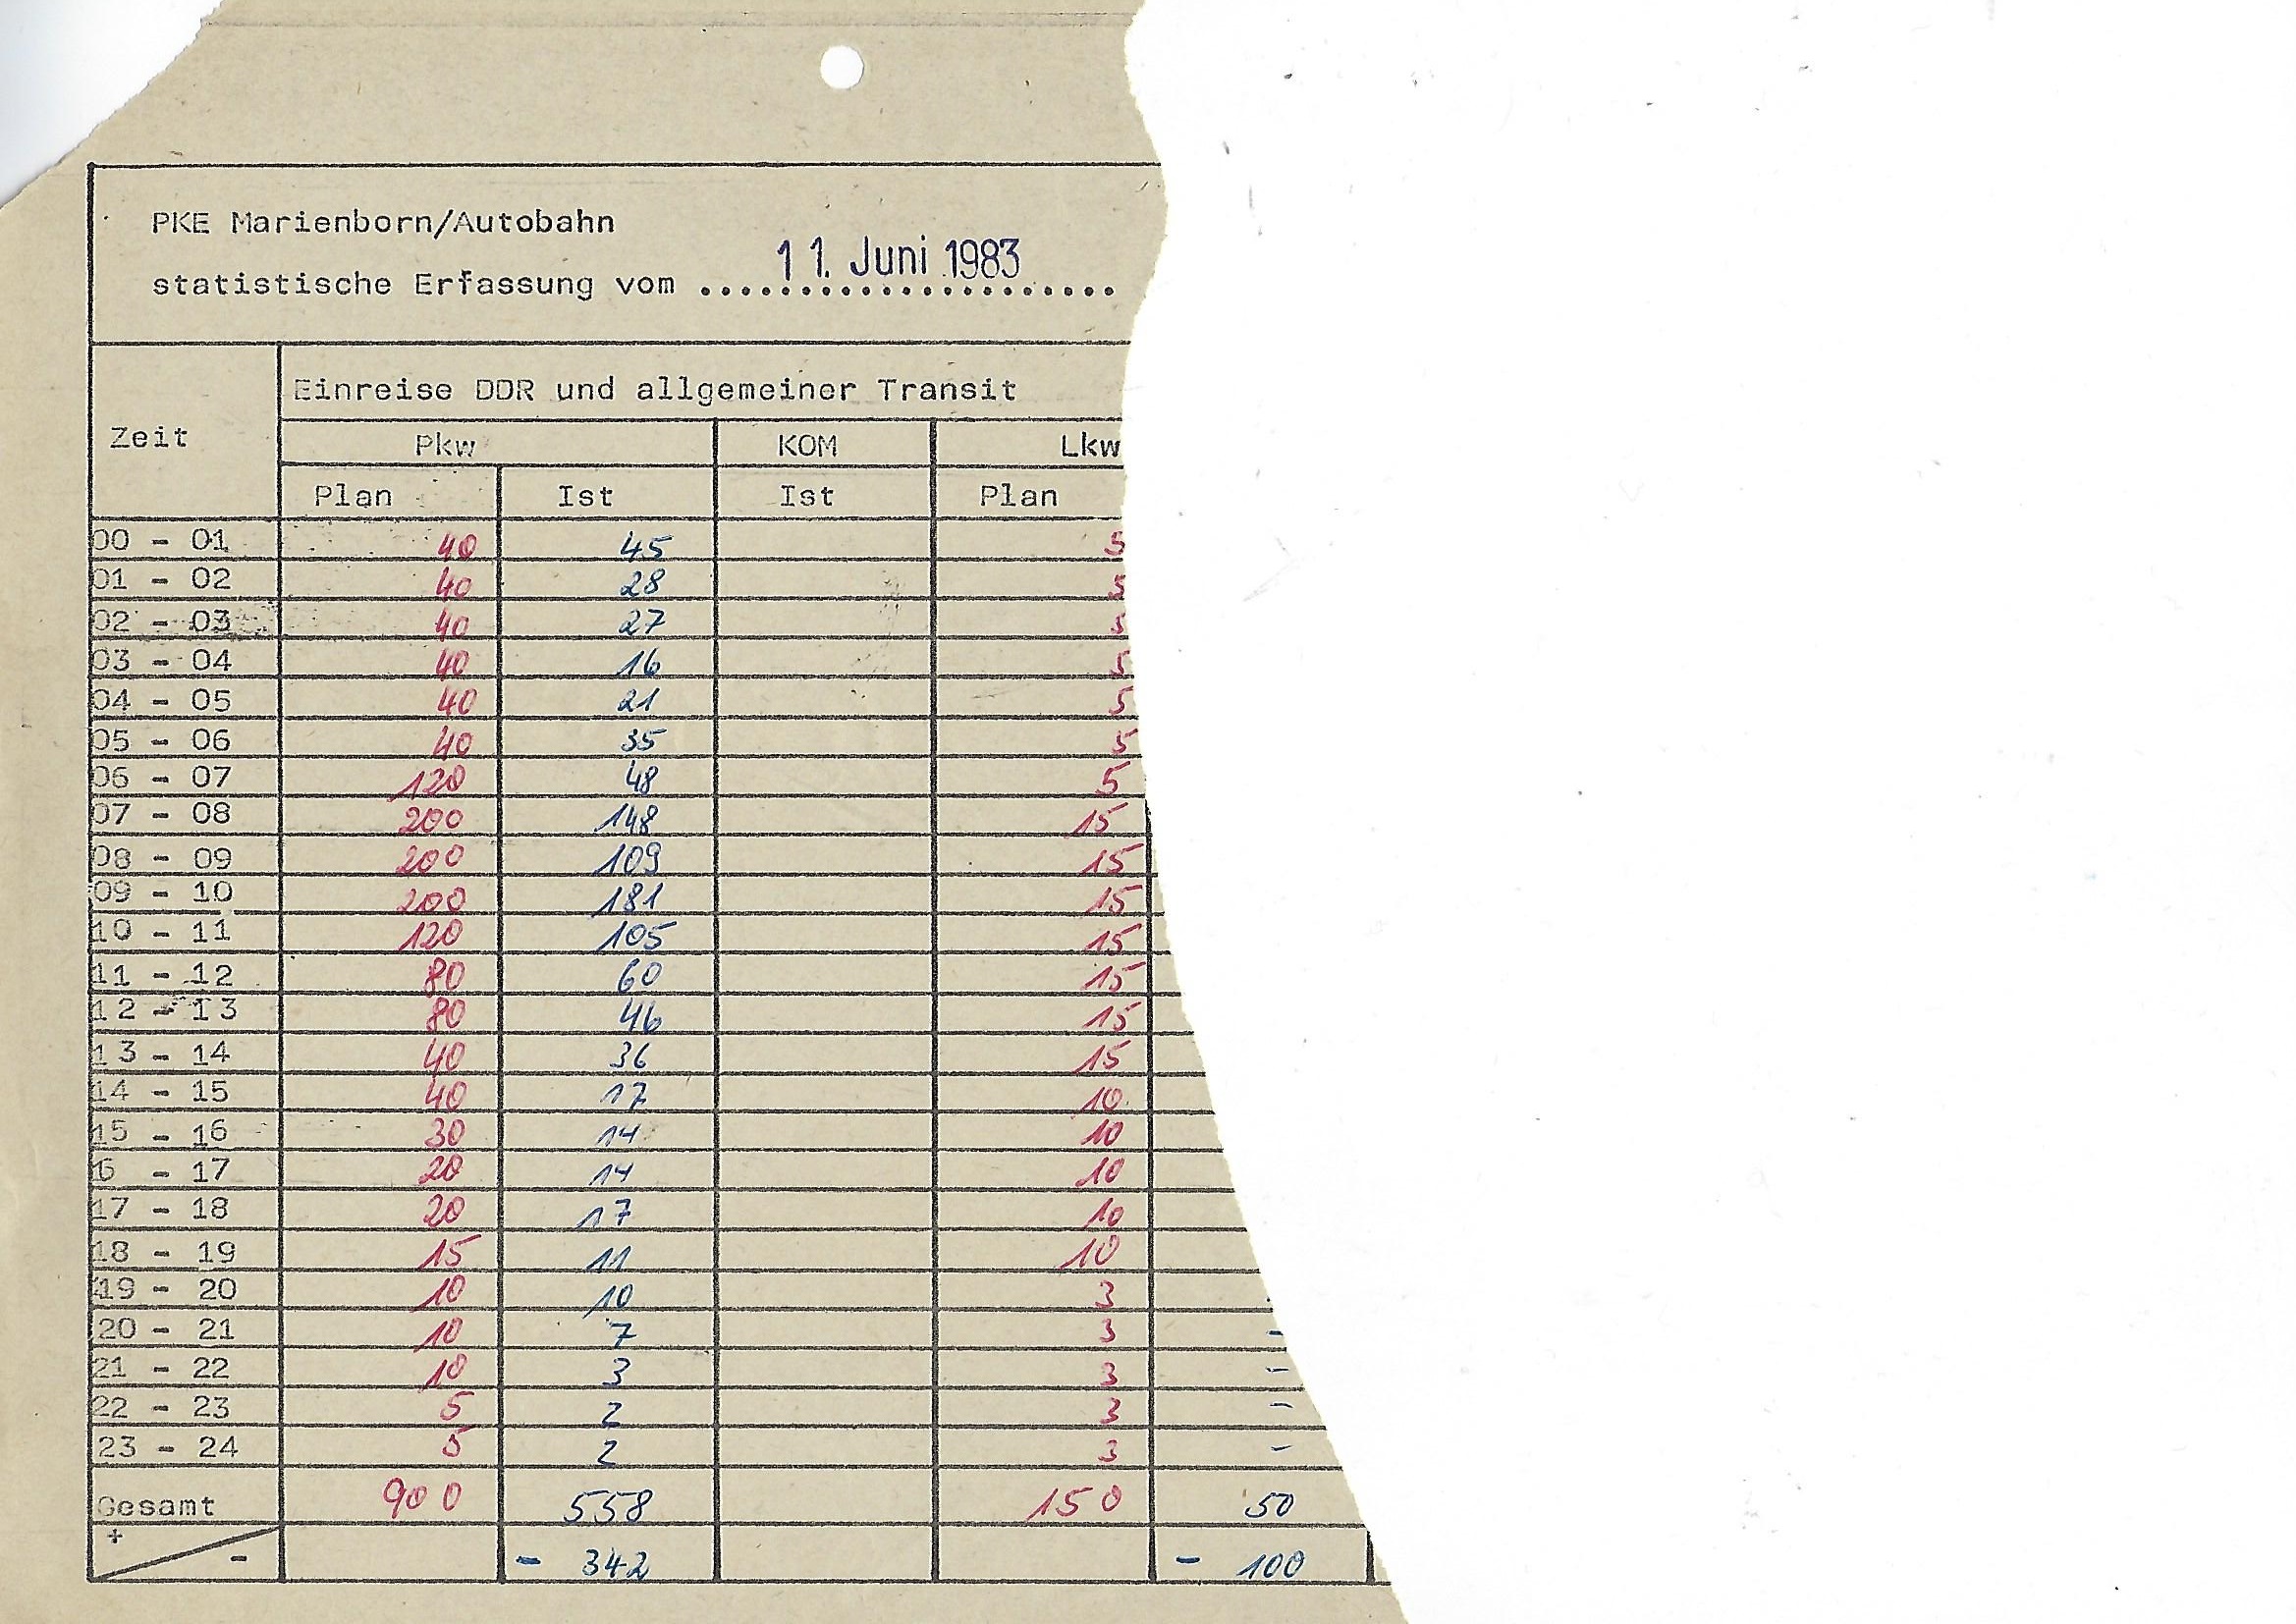 PKE Marienborn/Autobahn
statistische Erfassung vom 11. Juni 1983
Zeit
Einreise DDR und allgemeiner Transit
Pkw KOM Lkw
Plan Ist Ist Plan
00 - 01 40 45 5
01 - 02 40 28 5
02 - 03 40 27 5
03 - 04 40 16 5
04 - 05 40 21 5
05 - 06 40 35 5
06 - 07 120 48 5
07 - 08 200 148 15
08 - 09 200 109 15
09 - 10 200 181 15
10 - 11 120 105 15
11 - 12 80 60 15
12 - 13 80 46 15
13 - 14 40 36 15
14 - 15 40 17 10
15 - 16 30 14 10
6 - 17 20 14 10
17 - 18 20 17 10
18 - 19 15 11 10
19 - 20 10 10 3
20 - 21 10 7 3 -
21 - 22 10 3 3 -
22 - 23 5 2 3 -
23 - 24 5 2 3 -
Gesamt 900 558 150 50
+ - - 342 - 100